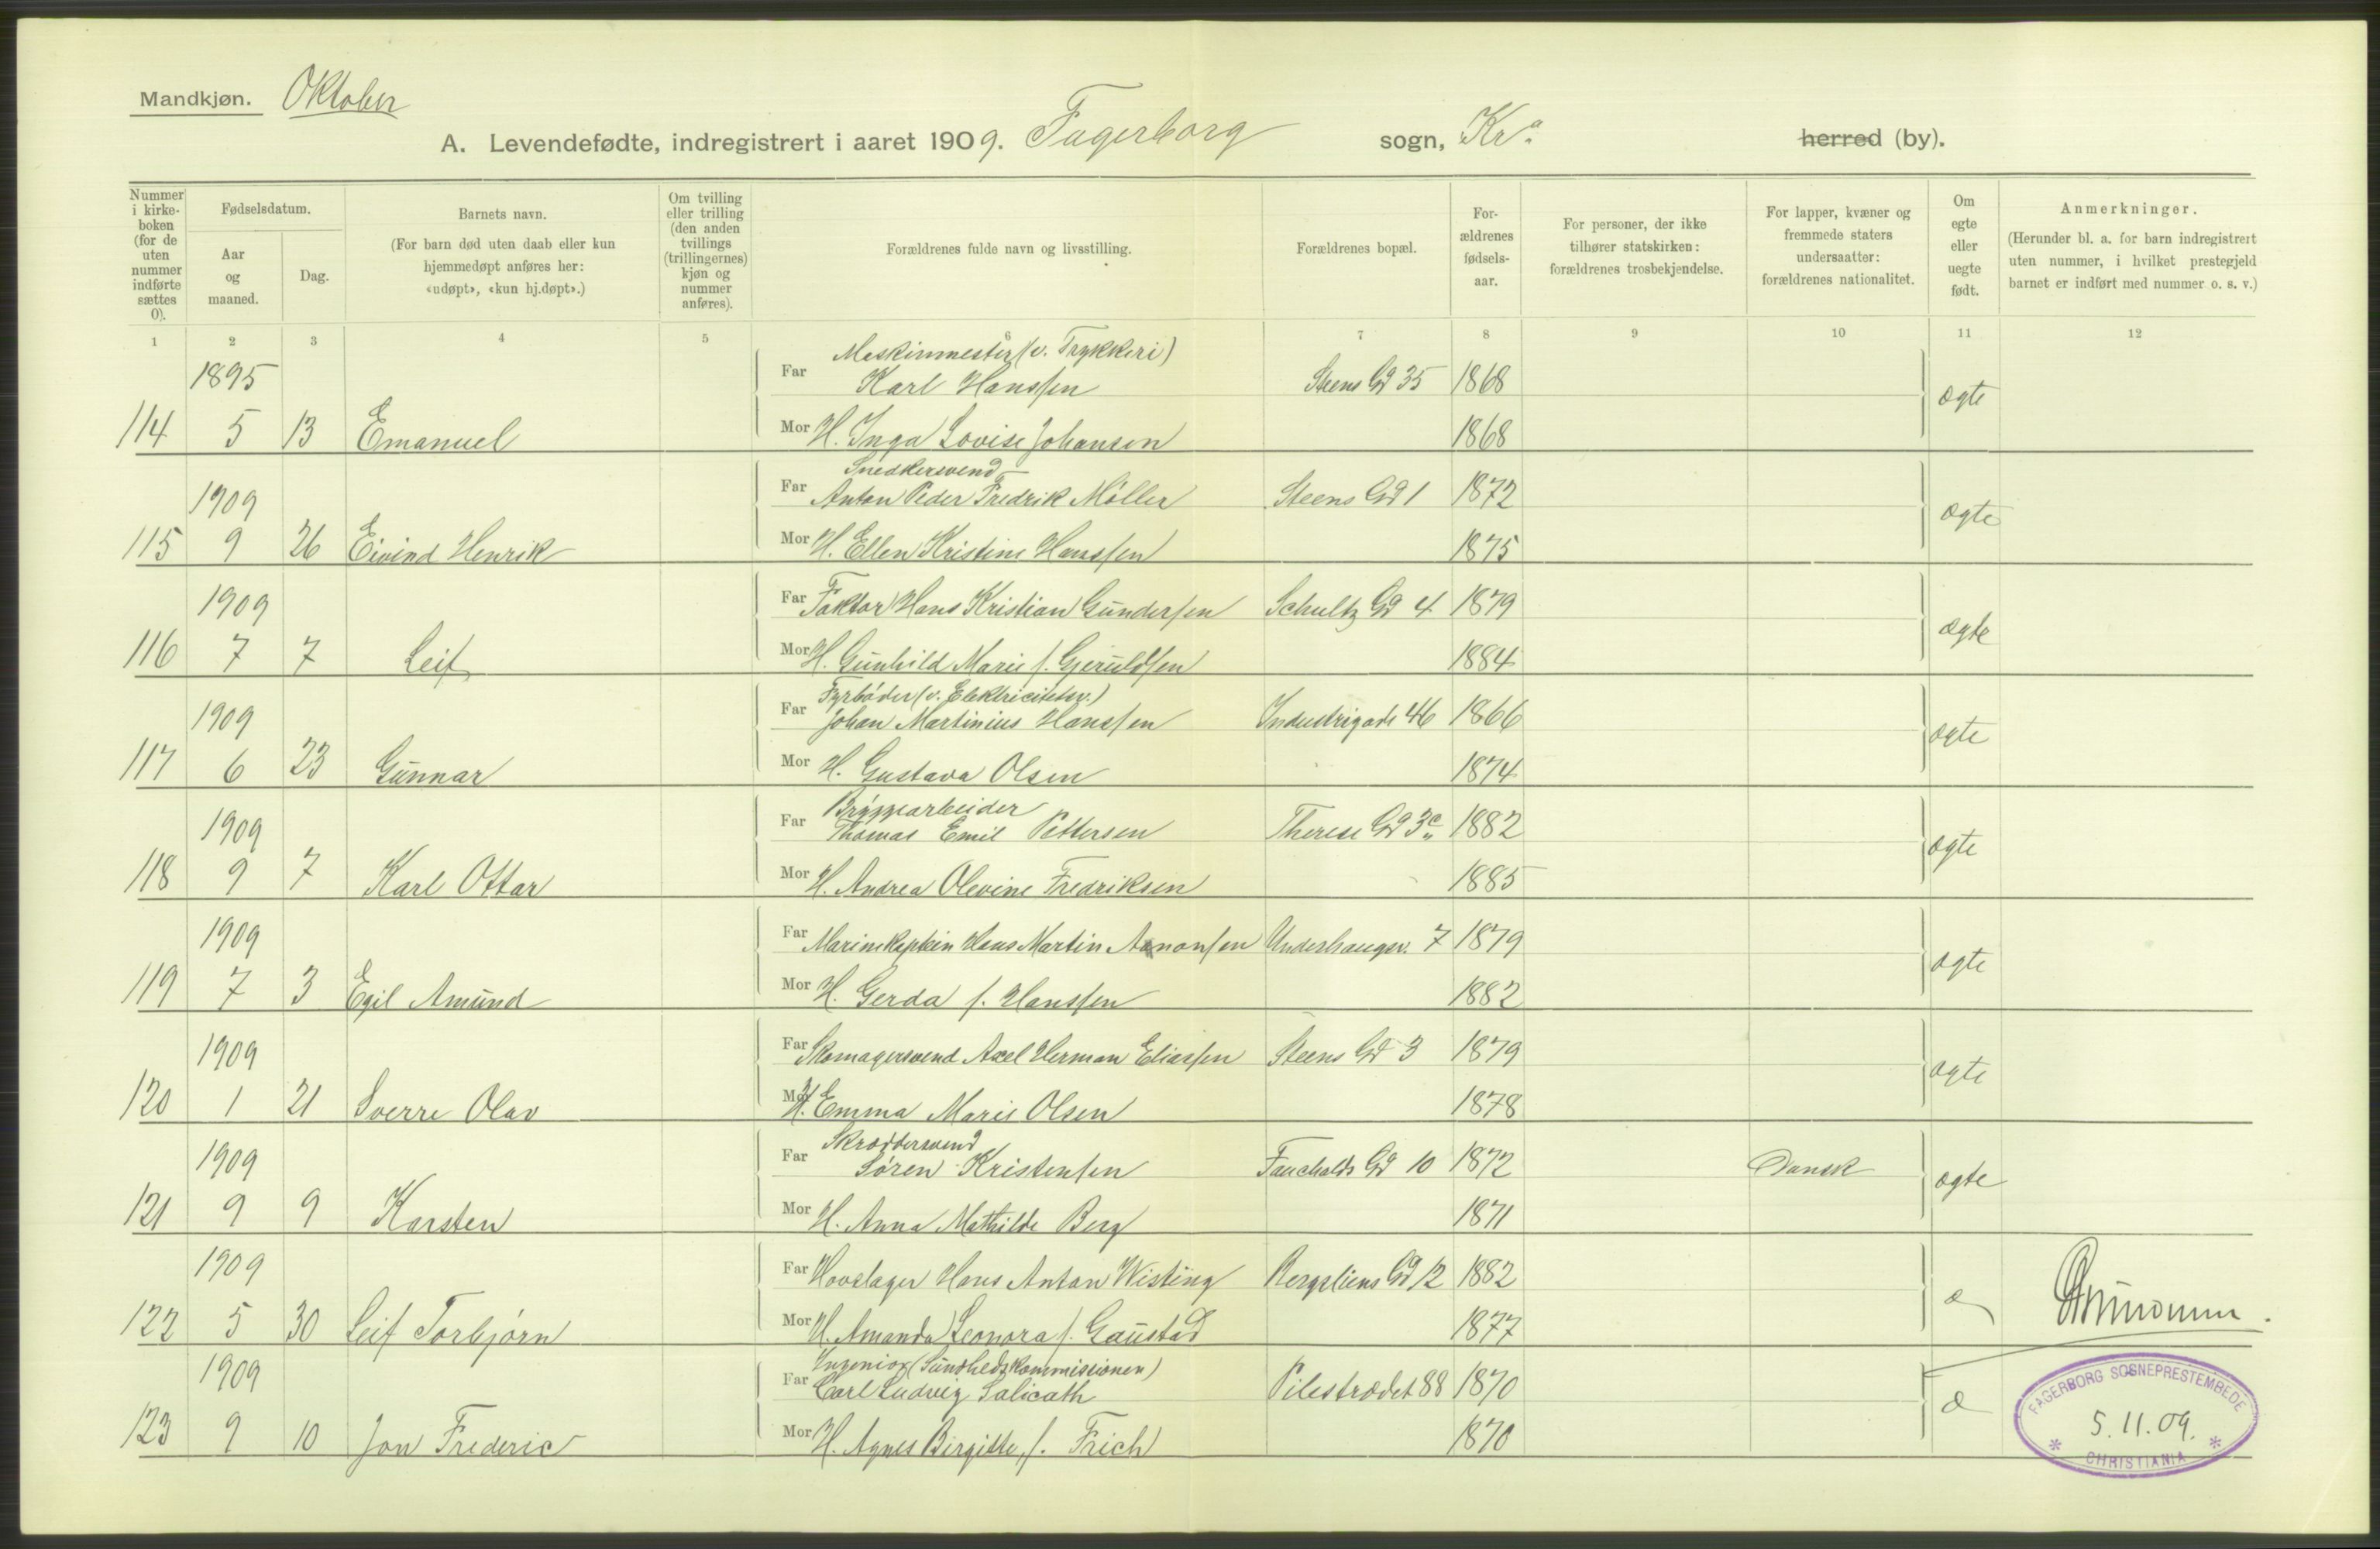 Mandkjøn. Oktober
A. Levendefødte, indregistrert i aaret 1909. Fagerborg sogn, Kr.a herred (by).
Nummer i kirke- boken (for de uten nummer indførte sættes 0).
Fødselsdatum.
Aar og maaned.
Dag.
Barnets navn.
(For barn død uten daab eller kun hjemmedøpt anføres her: «udøpt», «kun hj.døpt».)
Om tvilling eller trilling (den anden tvillings (trillingernes) kjøn og nummer anføres).
Forældrenes fulde navn og livsstilling.
Forældrenes bopæl.
For- ældrenes fødsels- aar.
For personer, der ikke tilhører statskirken: forældrenes trosbekjendelse.
For lapper, kvæner og fremmede staters undersaatter: forældrenes nationalitet.
Om egte eller uegte født.
Anmerkninger.
(Herunder bl. a. for barn indregistrert uten nummer, i hvilket prestegjeld barnet er indført med nummer o. s. v.)
1 2 3 4 5 6 7 8 9 10 11 12
Maskinmester (v. Trykkeri)
1895 Far Karl Hanssen Steens Gd 35 1868 ægte
114 5 13 Emanuel Mor H. Inga Lovise Johansen 1868
Snedkersvend
1909 Far Anton Peder Fredrik Møller Steens Gd 1 1872 ægte
115 9 26 Eivind Henrik Mor H. Ellen Kristine Hanssen 1875
1909 Far Faktor Hans Kristian Gundersen Schultz Gd 4 1879 ægte
116 7 7 Leif Mor H. Gunhild Marie f. Gjeruldsen 1884
Fyrbøder (v. Elektricitetsv.)
1909 Far Johan Martinius Hanssen Industrigade 46 1866 ægte
117 6 23 Gunnar Mor H. Gustava Olsen 1874
Bryggearbeider
1909 Far Thomas Emil Pettersen Therese Gd 3c 1882 ægte
118 9 7 Karl Ottar Mor H. Andrea Olevine Fredriksen 1885
1909 Far Marinekaptein Hans Martin Aanonsen Underhaugsv. 7 1879 ægte
119 7 3 Egil Amund Mor H. Gerda f. Hanssen 1882
1909 Far Skomagersvend Axel Herman Eliassen Steens Gd 3 1879 ægte
120 1 21 Sverre Olav Mor H. Emma Marie Olsen 1878
Skræddersvend
1909 Far Søren Kristensen Fauchalds Gd 10 1872 Dansk ægte
121 9 9 Karsten Mor H. Anna Mathilde Berg 1871
1909 Far Hovslager Hans Anton Wisting Bergsliens Gd 12 1882 æ
122 5 30 Leif Torbjørn Mor H. Amanda Leonora f. Gaustad 1877
Ingeniør (Sundhedskommissionen)
1909 Far Carl Ludvig Salicath Pilestrædet 88 1870 æ
123 9 10 Jon Frederic Mor H. Agnes Birgitte, f. Frich 1870
FAGERBORG SOGNEPRESTEMBEDE
5.11.09.
* CHRISTIANIA *